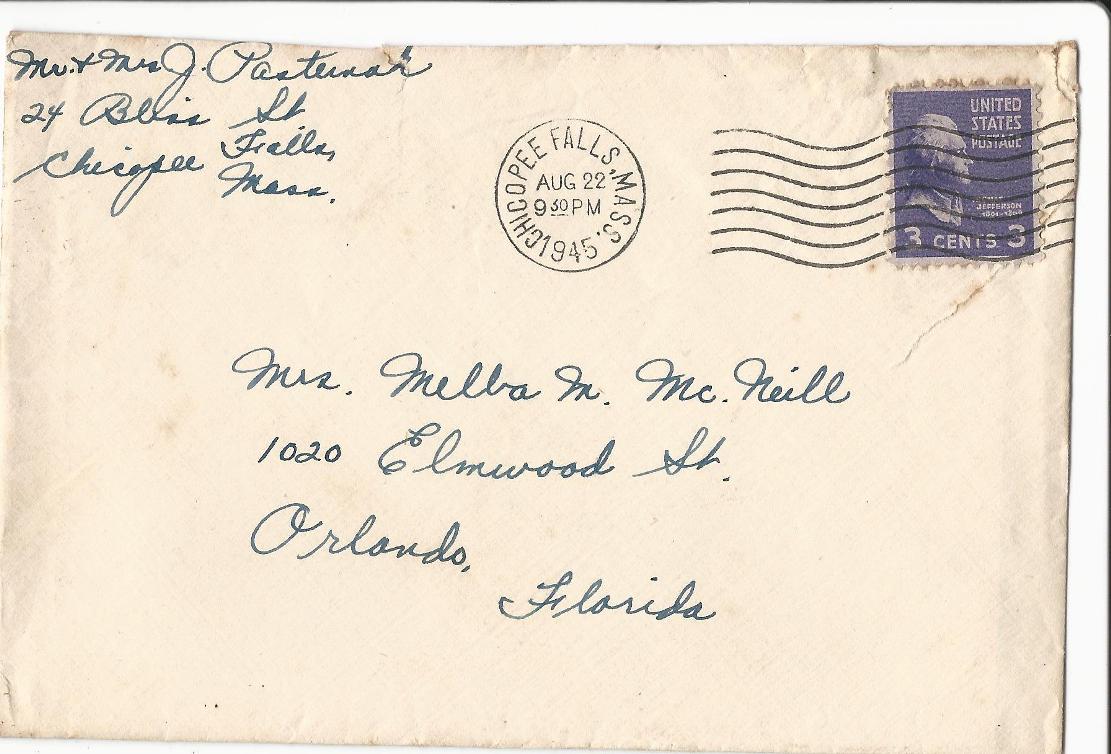 Mr. & Mrs J. Pasternak
24 Bliss St
Chicopee Falls,
Mass.
CHICOPEE FALLS, MASS.
AUG 22
9 30 PM
1945
UNITED
STATES
POSTAGE
JEFFERSON
3 CENTS 3
Mrs. Melba M. Mc. Neill
1020 Elmwood St.
Orlando,
Florida